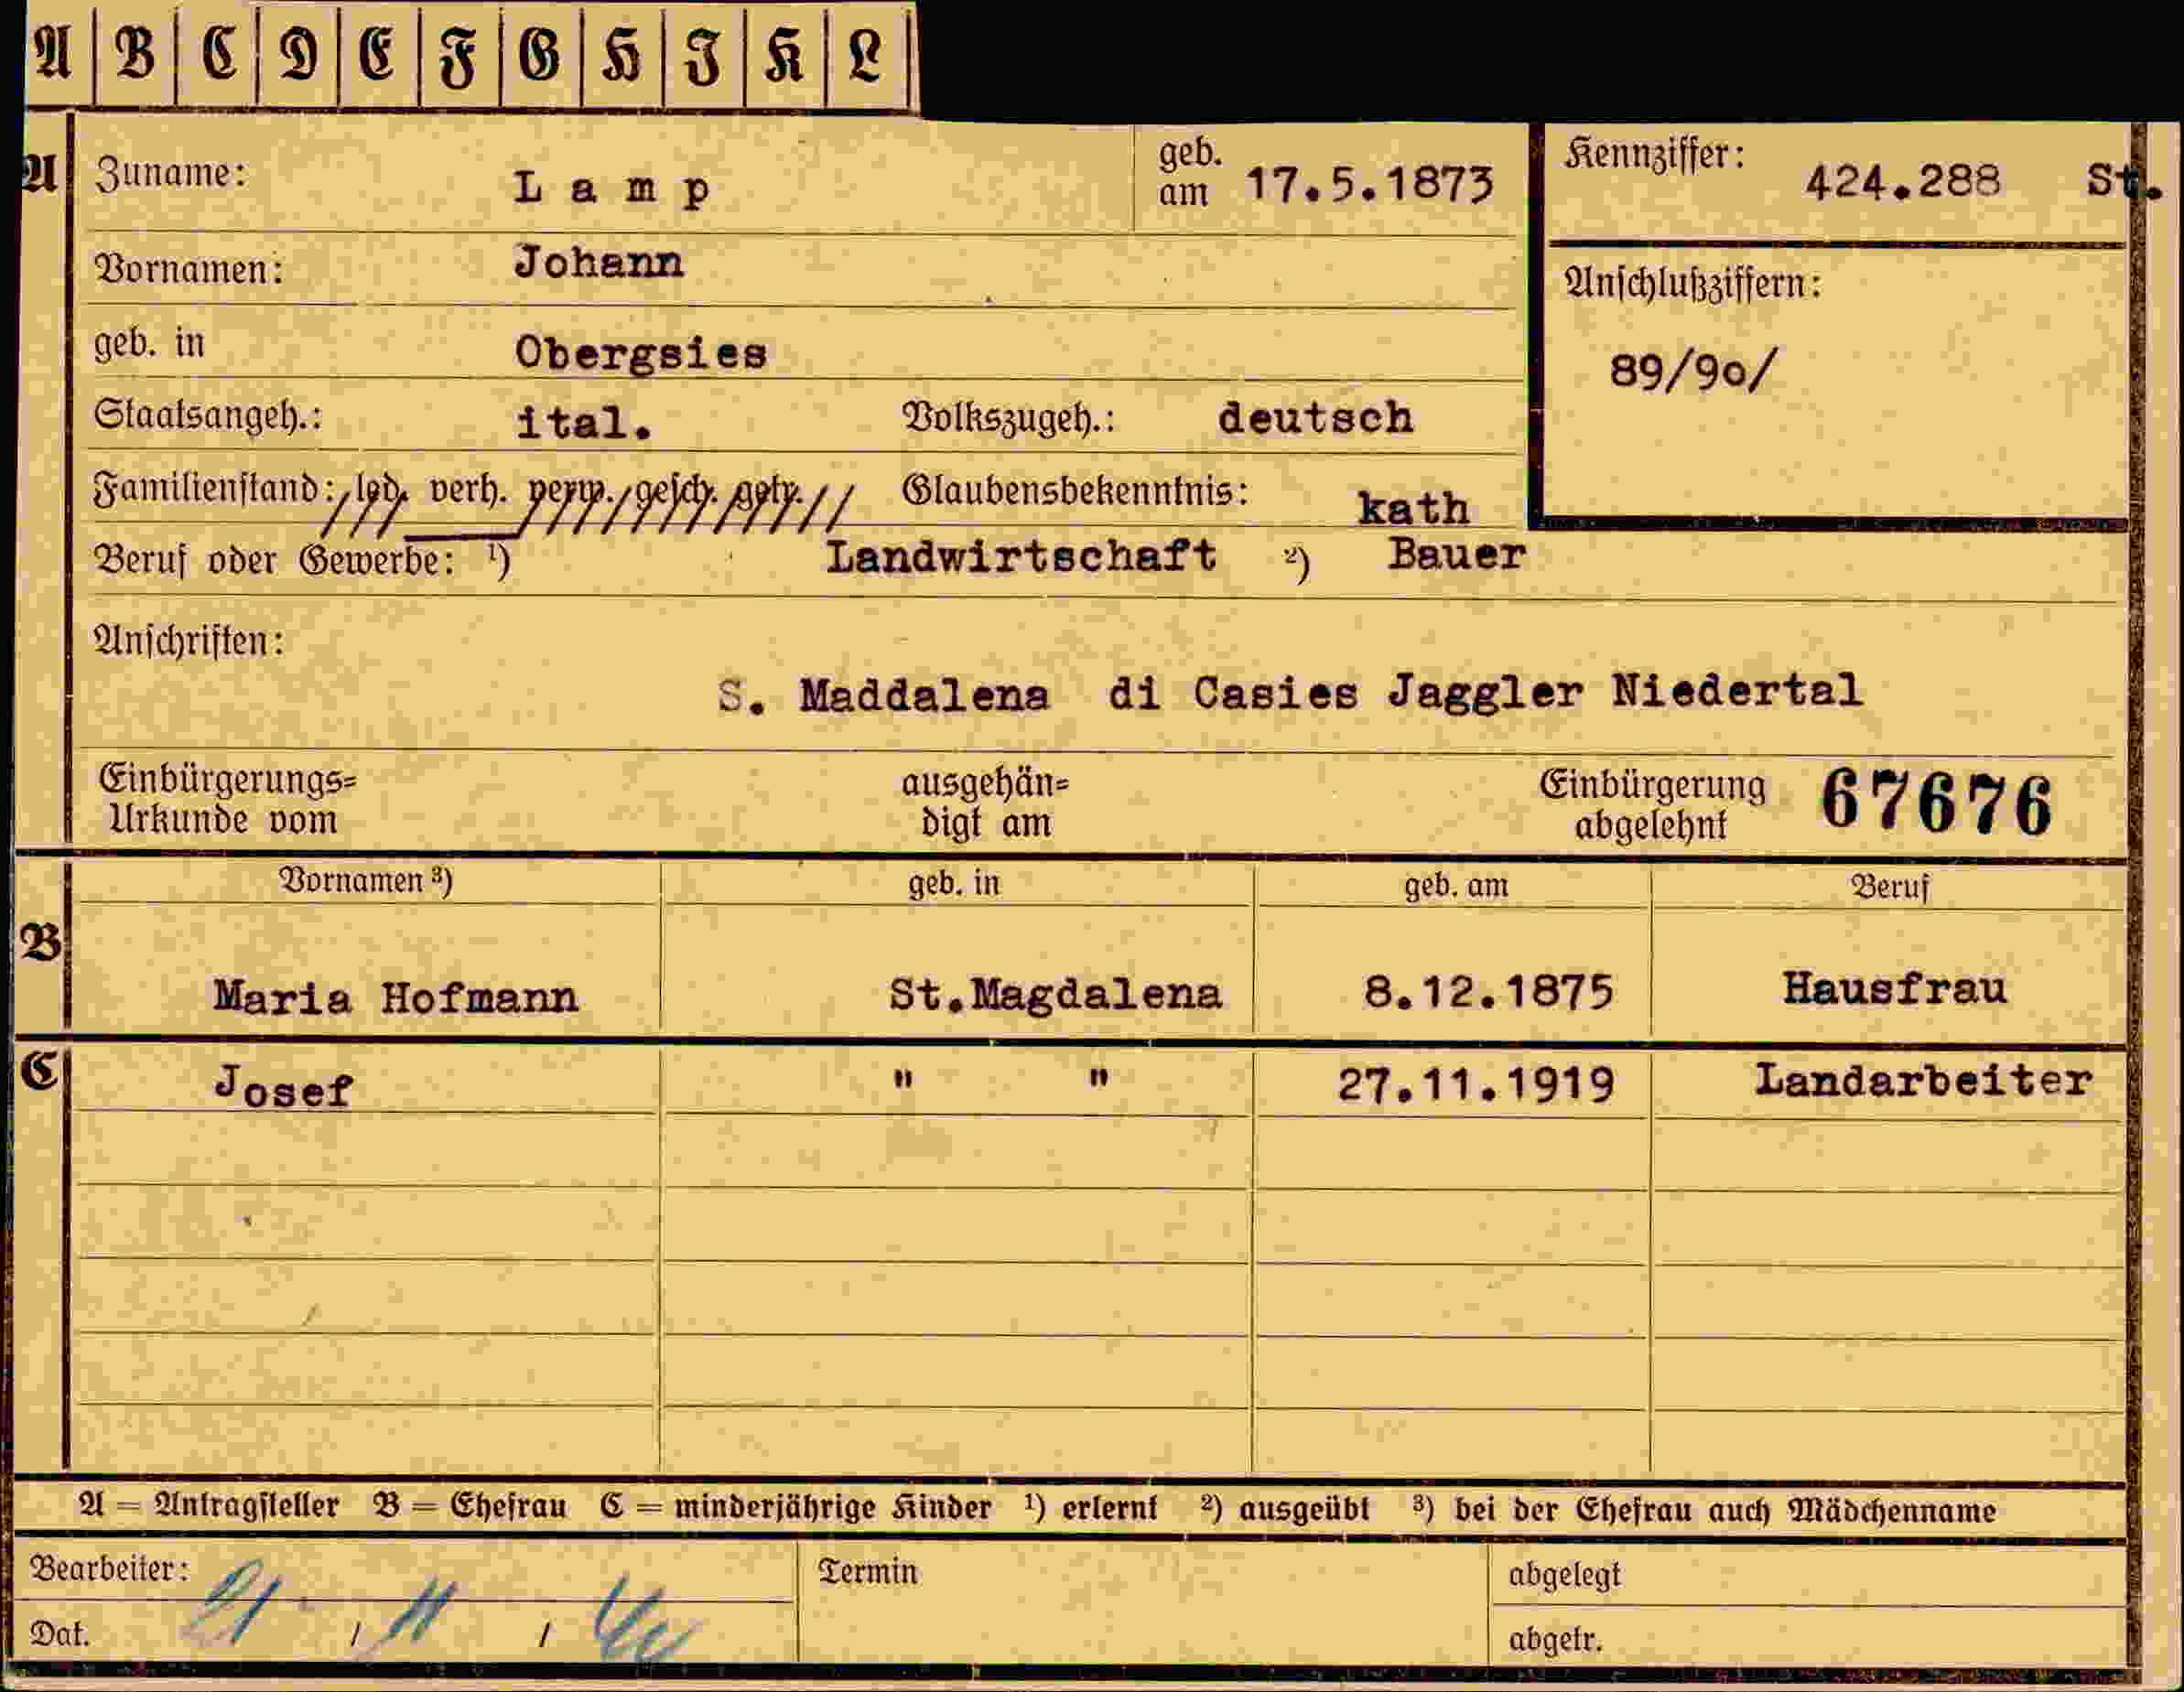 A B C D E F G H I K L
A Zuname: Lamp geb. am 17.5.1873 Kennziffer: 424.288 St.
Vornamen: Johann
Anschlußziffern:
geb. in Obergsies
89/90/
Staatsangeh.: ital. Volkszugeh.: deutsch
Familienstand: led. verh. verw. gesch. getr. Glaubensbekenntnis: kath
Beruf oder Gewerbe: ¹) Landwirtschaft ²) Bauer
Anschriften:
S. Maddalena di Casies Jaggler Niedertal
Einbürgerungs= ausgehän= Einbürgerung 67676
Urkunde vom digt am abgelehnt
Vornamen ³) geb. in geb. am Beruf
B
Maria Hofmann St.Magdalena 8.12.1875 Hausfrau
C Josef " " 27.11.1919 Landarbeiter
A = Antragsteller B = Ehefrau C = minderjährige Kinder ¹) erlernt ²) ausgeübt ³) bei der Ehefrau auch Mädchenname
Bearbeiter: Termin abgelegt
Dat. abgetr.